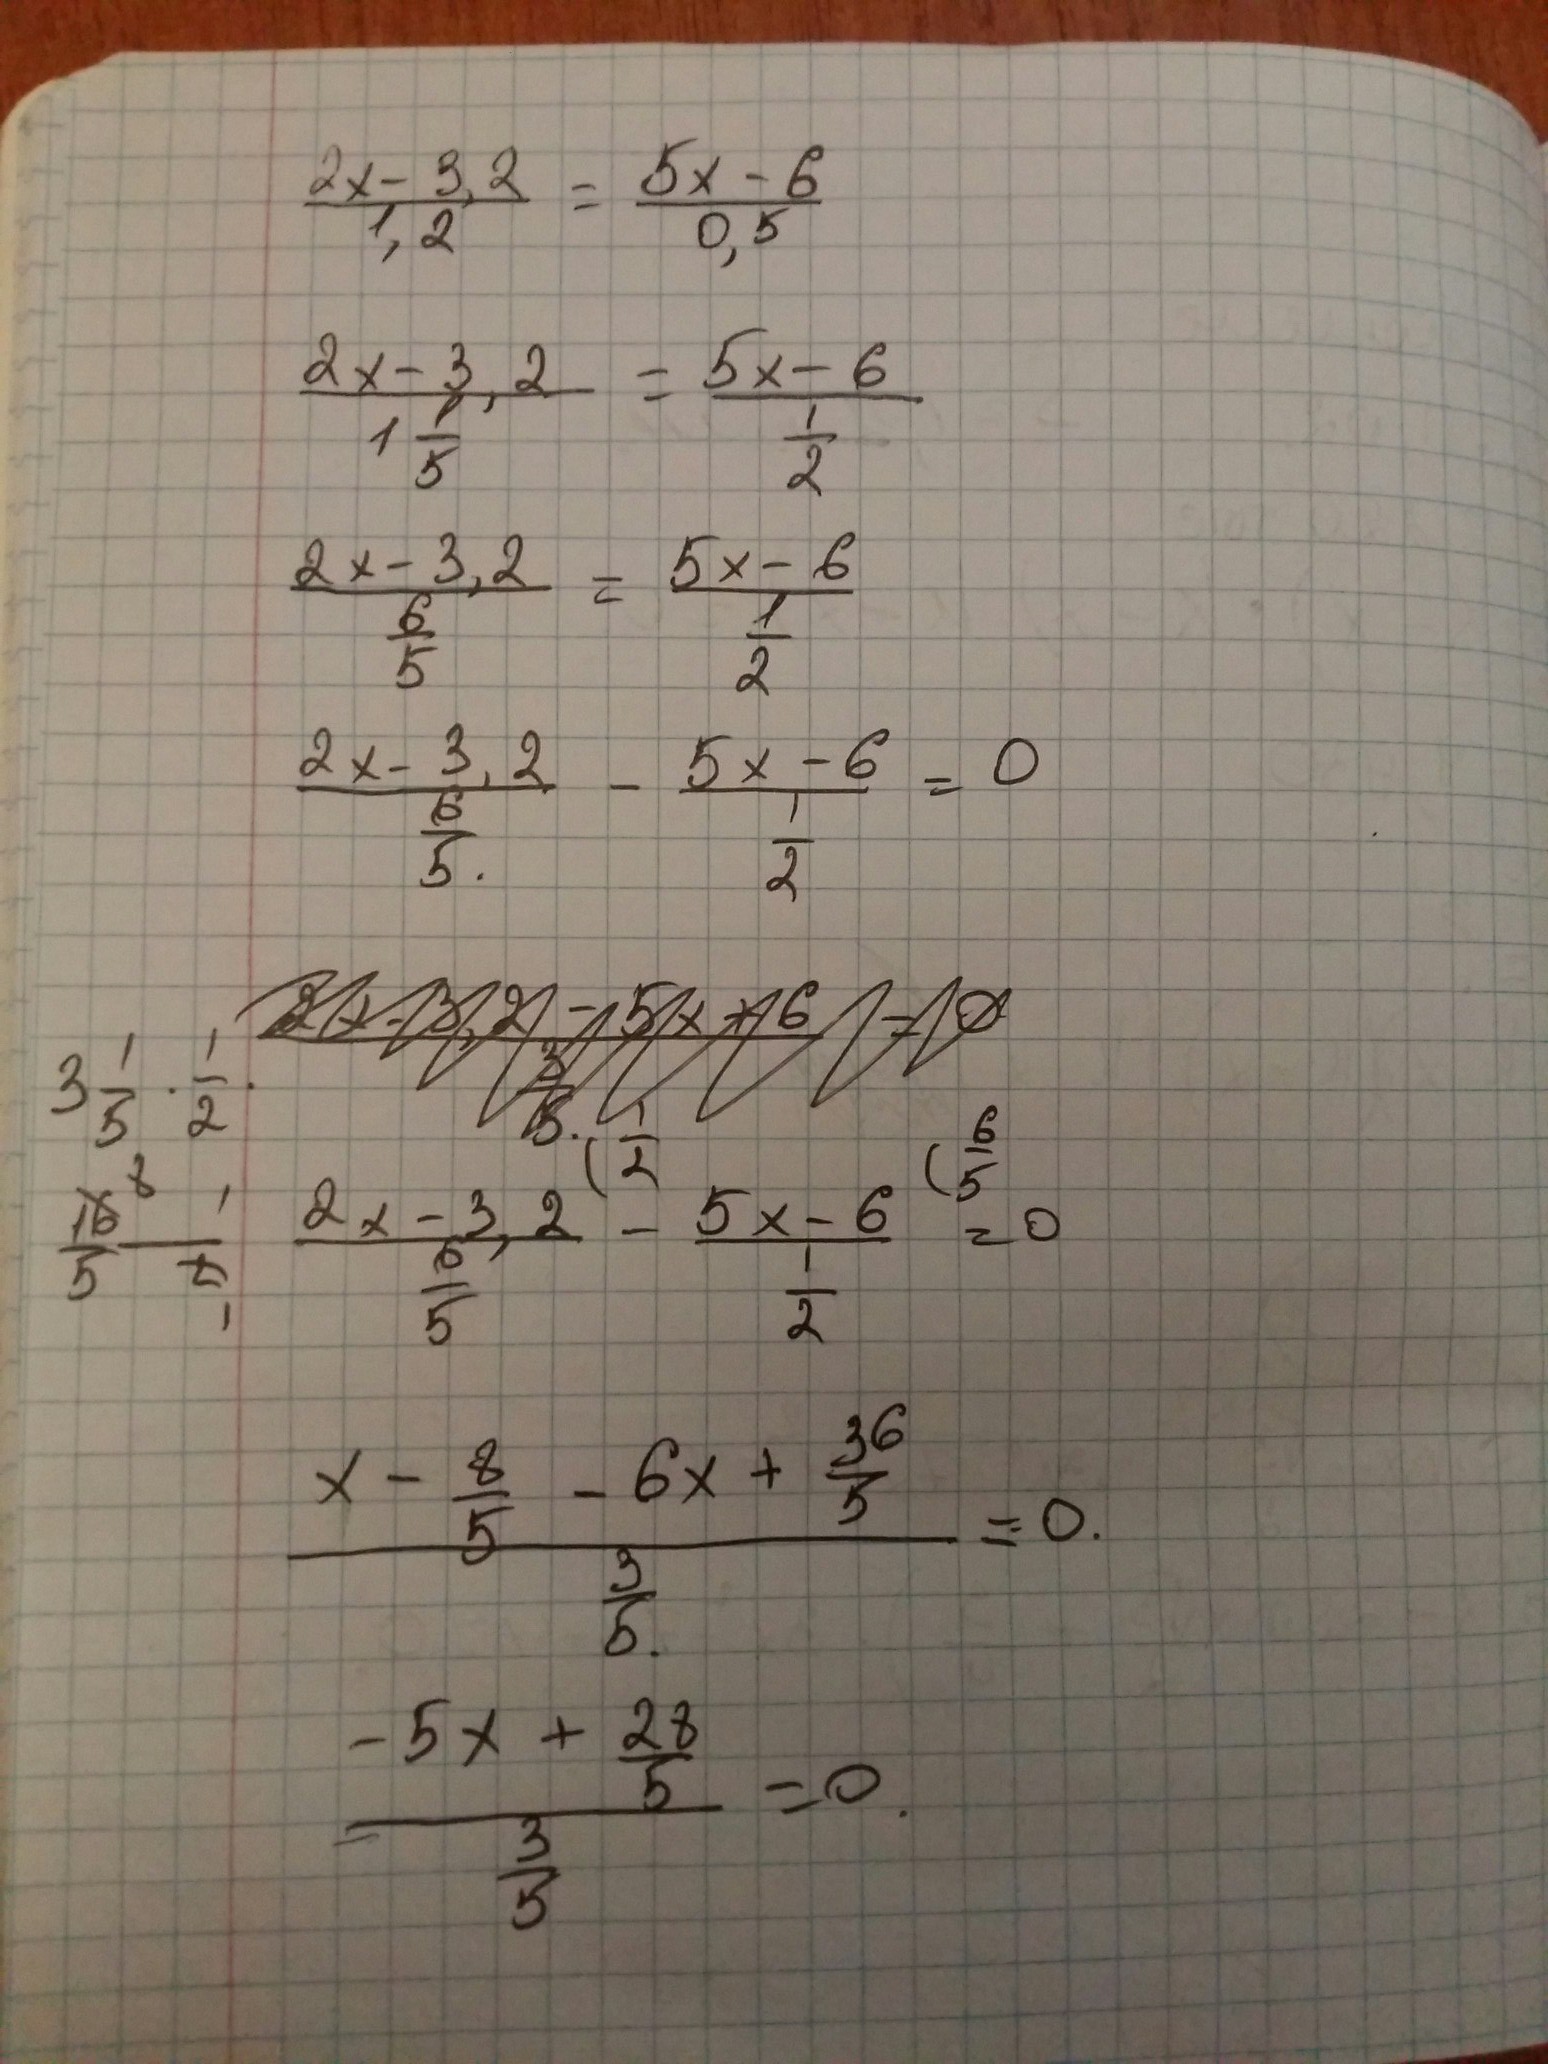 (2x - 3,2)/(1,2) = (5x - 6)/(0,5)
(2x - 3,2)/(1 1/5) = (5x - 6)/(1/2)
(2x - 3,2)/(6/5) = (5x - 6)/(1/2)
(2x - 3,2)/(6/5.) - (5x - 6)/(1/2) = 0
(2x - 3,2 - 5x + 6)/(3/5.) = 0
3 1/5 · 1/2 ·
16/5 8 1/2 1
(2x - 3,2)/(6/5) (1/2 - (5x - 6)/(1/2) (6/5 = 0
(x - 8/5 - 6x + 36/5)/(3/5.) = 0.
(-5x + 28/5)/(3/5) = 0.